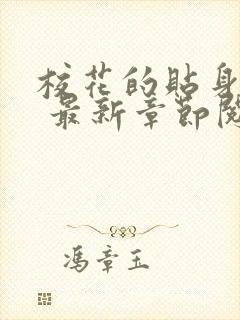 校花的贴身
最新章節閱
馮章玉